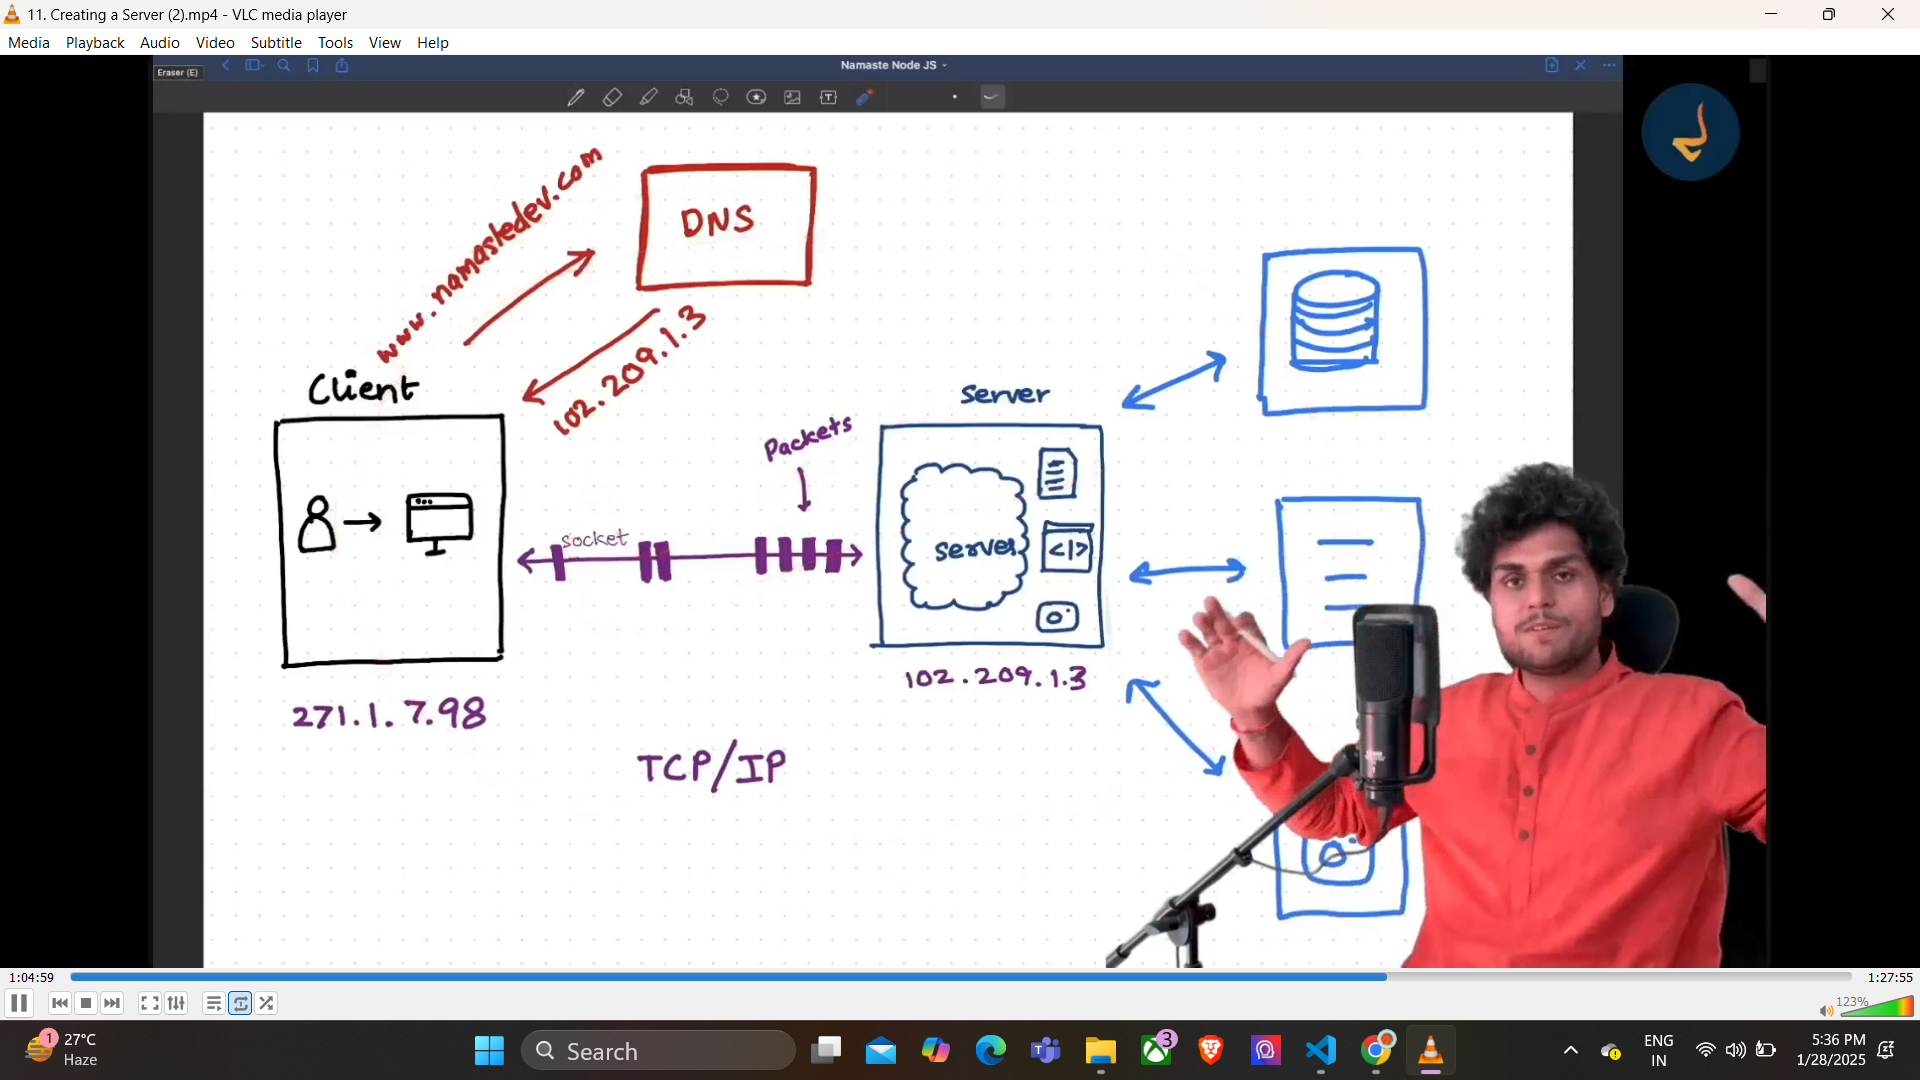 11. Creating a Server (2).mp4 - VLC media player
Media Playback Audio Video Subtitle Tools View Help
Eraser (E)
Namaste Node JS
www.namastedev.com
DNS
102.209.1.3
Client
Server
Packets
socket
server
<|>
102.209.1.3
271.1.7.98
TCP/IP
1:04:59
1:27:55
123%
1
27°C
Haze
Search
3
ENG
IN
5:36 PM
1/28/2025